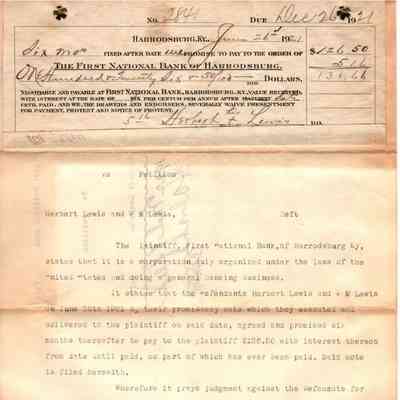 No. 2841 Due Dec 26 1921
Harrodsburg, Ky. June 26th 1921
Six Mos fixed after date we promise to pay to the order of $126 50
The First National Bank of Harrodsburg.
One Hundred & Twenty Six & 50/100 Dollars,
Negotiable and payable at First National Bank, Harrodsburg, Ky., value received,
with interest at the rate of six per centum per annum after
until paid. And we, the drawers and endorsers, severally waive presentment
for payment, protest and notice of protest.
Herbert Lewis
vs Petition
Herbert Lewis and W M Lewis, Deft
The Plaintiff, First National Bank, of Harrodsburg Ky,
states that it is a corporation duly organized under the laws of the
United States and doing a general banking business.
It states that the defendants Herbert Lewis and W M Lewis
on June 26th 1921 by their promissory note which they executed and
delivered to the plaintiff on said date, agreed and promised six
months thereafter to pay to the plaintiff $126.50 with interest thereon
from date until paid, no part of which has ever been paid. Said note
is filed herewith.
Wherefore it prays judgment against the defendants for